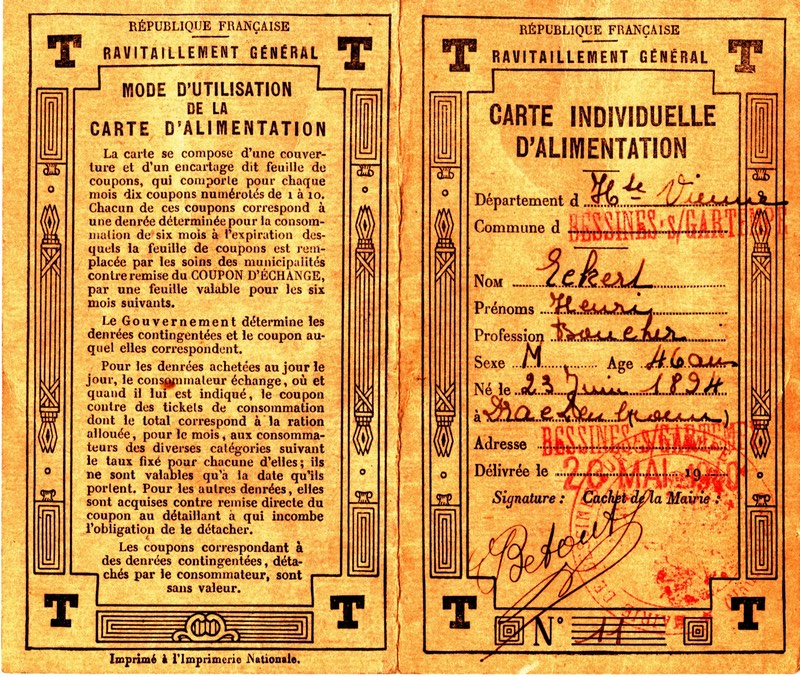 RÉPUBLIQUE FRANÇAISE
RAVITAILLEMENT GÉNÉRAL
T T
MODE D'UTILISATION
DE LA
CARTE D'ALIMENTATION
La carte se compose d'une couver-
ture et d'un encartage dit feuille de
coupons, qui comporte pour chaque
mois dix coupons numérotés de 1 à 10.
Chacun de ces coupons correspond à
une denrée déterminée pour la consom-
mation de six mois à l'expiration des-
quels la feuille de coupons est rem-
placée par les soins des municipalités
contre remise du COUPON D'ÉCHANGE,
par une feuille valable pour les six
mois suivants.
Le Gouvernement détermine les
denrées contingentées et le coupon au-
quel elles correspondent.
Pour les denrées achetées au jour le
jour, le consommateur échange, où et
quand il lui est indiqué, le coupon
contre des tickets de consommation
dont le total correspond à la ration
allouée, pour le mois, aux consomma-
teurs des diverses catégories suivant
le taux fixé pour chacune d'elles; ils
ne sont valables qu'à la date qu'ils
portent. Pour les autres denrées, elles
sont acquises contre remise directe du
coupon au détaillant à qui incombe
l'obligation de le détacher.
Les coupons correspondant à
des denrées contingentées, déta-
chés par le consommateur, sont
sans valeur.
T T
Imprimé à l'Imprimerie Nationale.
RÉPUBLIQUE FRANÇAISE
RAVITAILLEMENT GÉNÉRAL
T T
CARTE INDIVIDUELLE
D'ALIMENTATION
Département d Hte Vienne
Commune d BESSINES-s/GARTEMPE
NOM Eckert
Prénoms Henri
Profession Boucher
Sexe M Age 46 ans
Né le 23 Juin 1894
à
Adresse BESSINES-s/GARTEMPE
Délivrée le 19
Signature : Cachet de la Mairie :
Betout
T T
N° 11